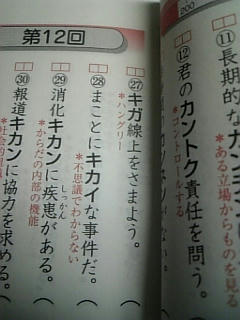 200
⑪長期的な
＊ある立場からものを見る
⑫君のカントク責任を問う。
＊コントロールする
第12回
㉗キガ線上をさまよう。
＊ハングリー
㉘まことにキカイな事件だ。
＊不思議でわからない
㉙消化キカンに疾患がある。
しっかん
＊からだの内部の機能
㉚報道キカンに協力を求める。